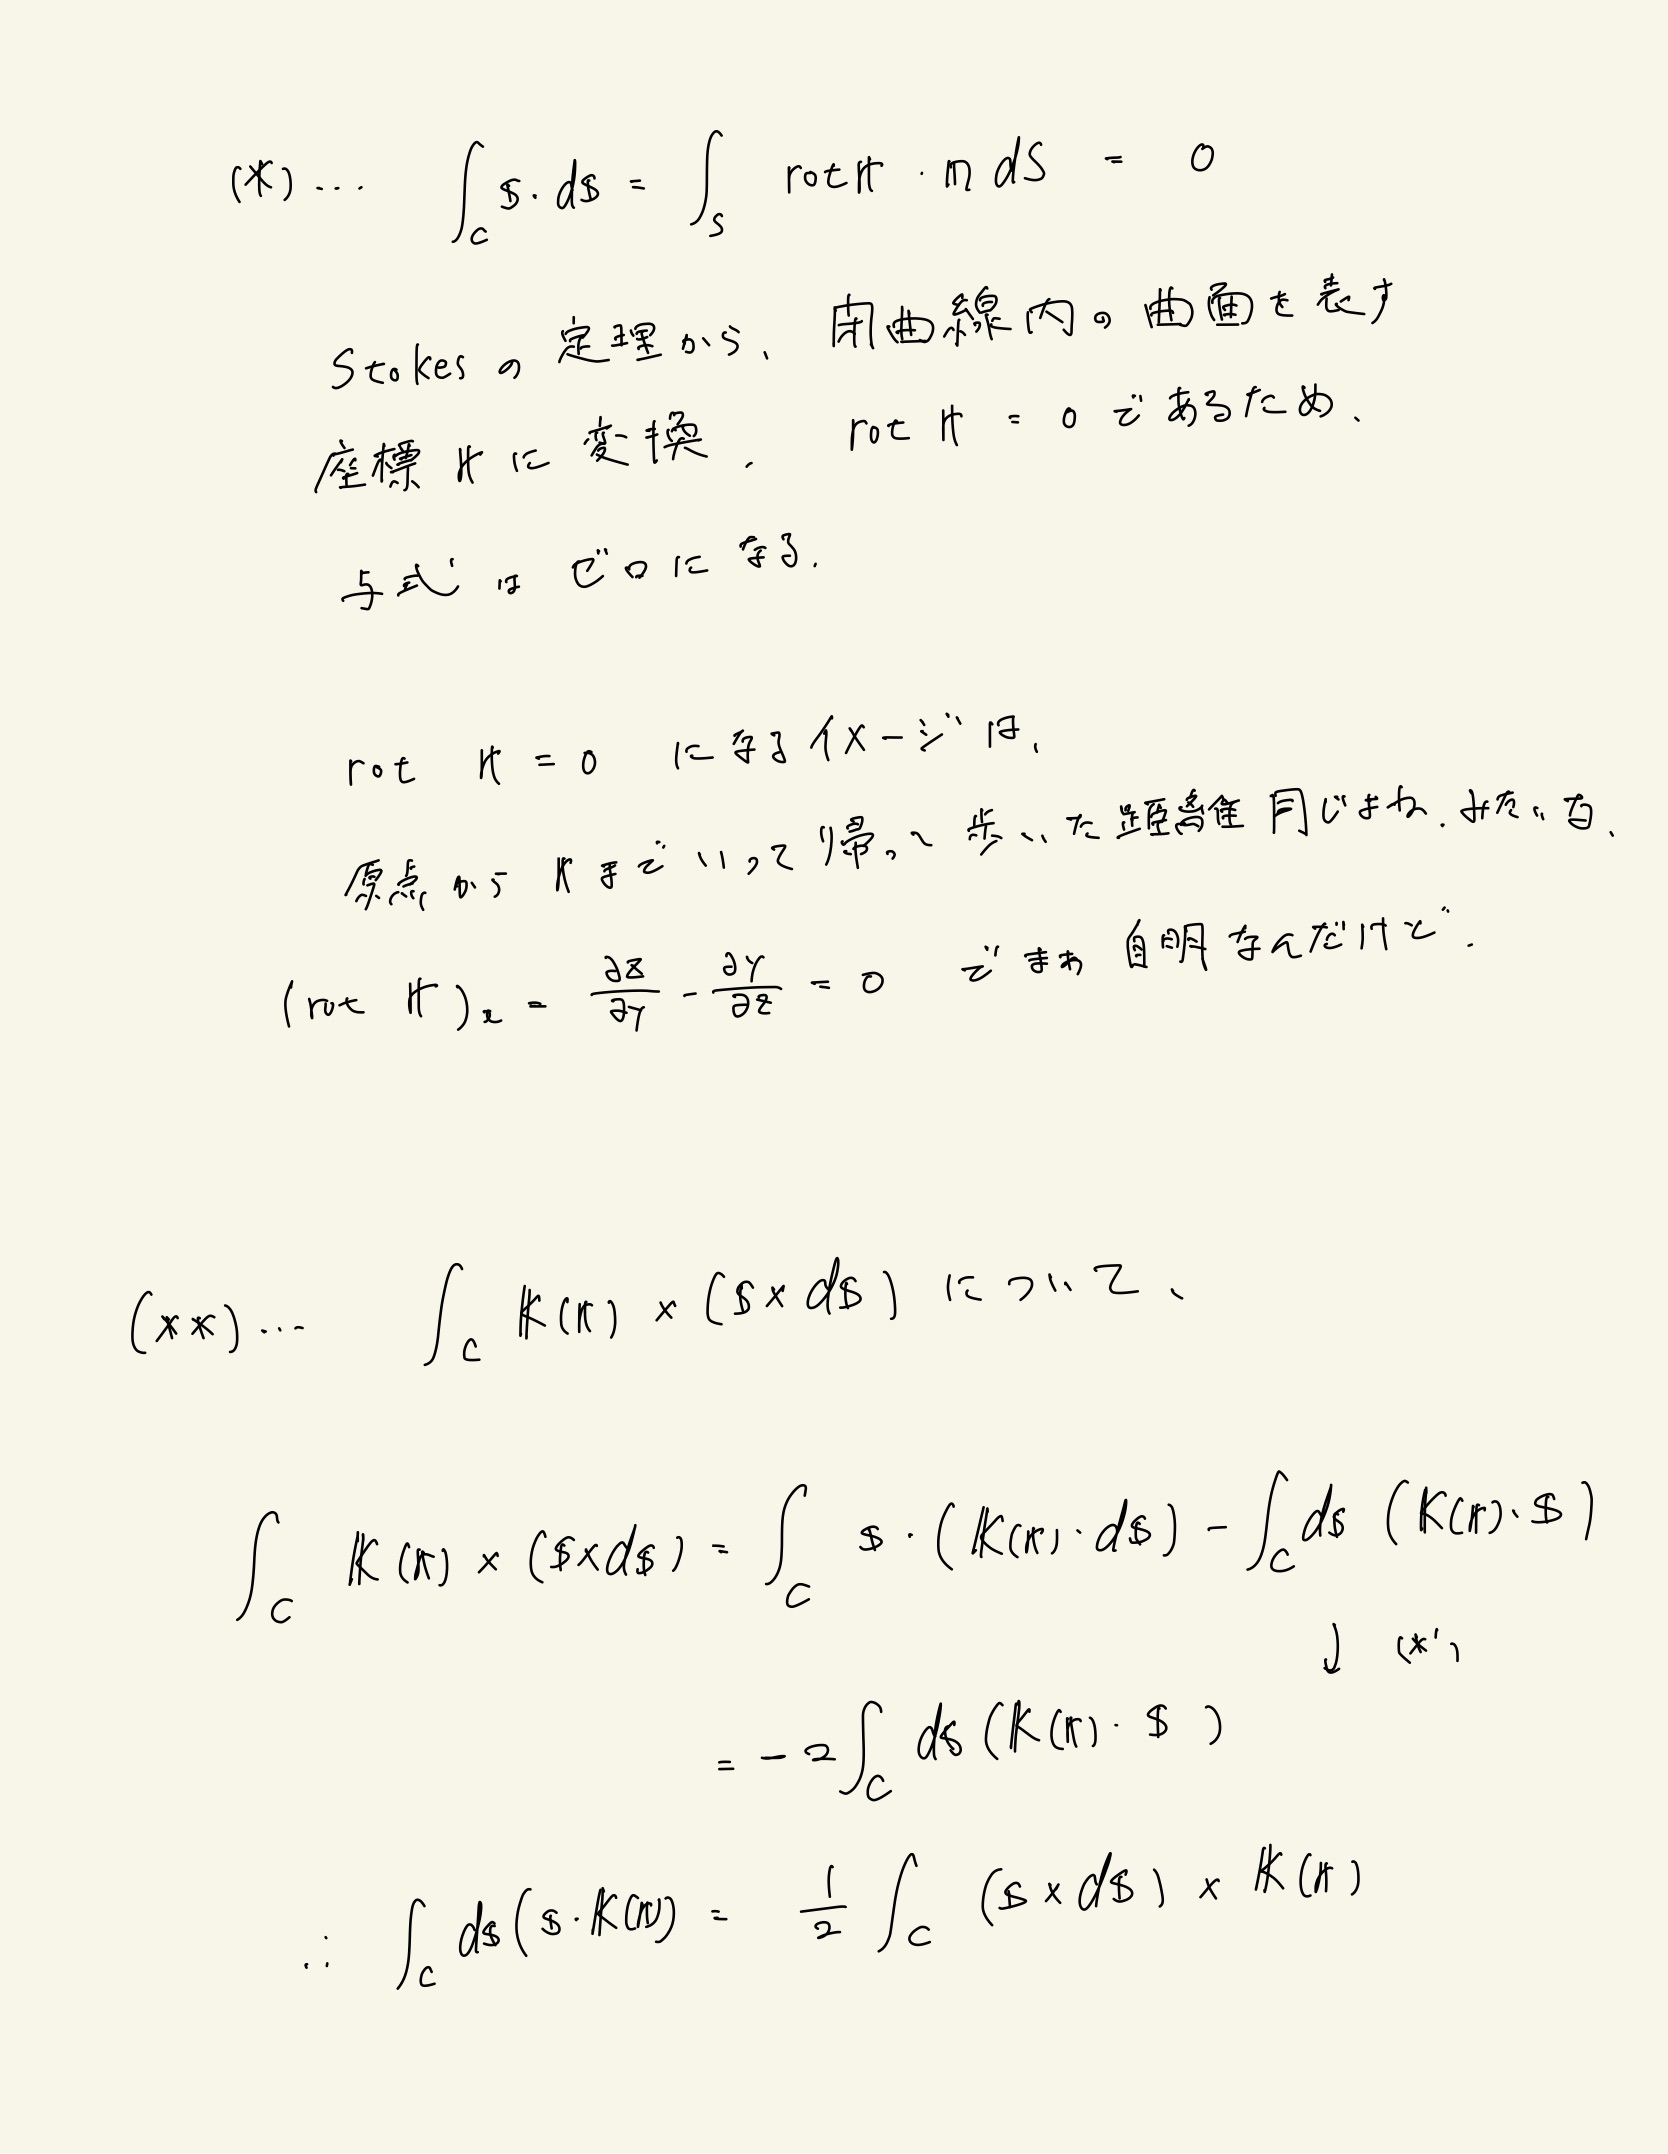 (*)… ∫_C 𝕤・d𝕤 = ∫_S rot 𝕣・𝕟 dS = 0
Stokesの定理から、閉曲線内の曲面を表す
座標 𝕣 に変換. rot 𝕣 = 0 であるため、
与式はゼロになる.
rot 𝕣 = 0 になるイメージは、
原点から 𝕣 までいって帰って歩いた距離同じよね.みたいな、
(rot 𝕣)_x = ∂z/∂y - ∂y/∂z = 0 でまぁ自明なんだけど.
(**)… ∫_C 𝕂(𝕣) × (𝕤×d𝕤) について、
∫_C 𝕂(𝕣) × (𝕤×d𝕤) = ∫_C 𝕤・(𝕂(𝕣)・d𝕤) - ∫_C d𝕤 (𝕂(𝕣)・𝕤)
↓ (*')
= -2∫_C d𝕤 (𝕂(𝕣)・𝕤)
∴ ∫_C d𝕤(𝕤・𝕂(𝕣)) = 1/2 ∫_C (𝕤×d𝕤) × 𝕂(𝕣)